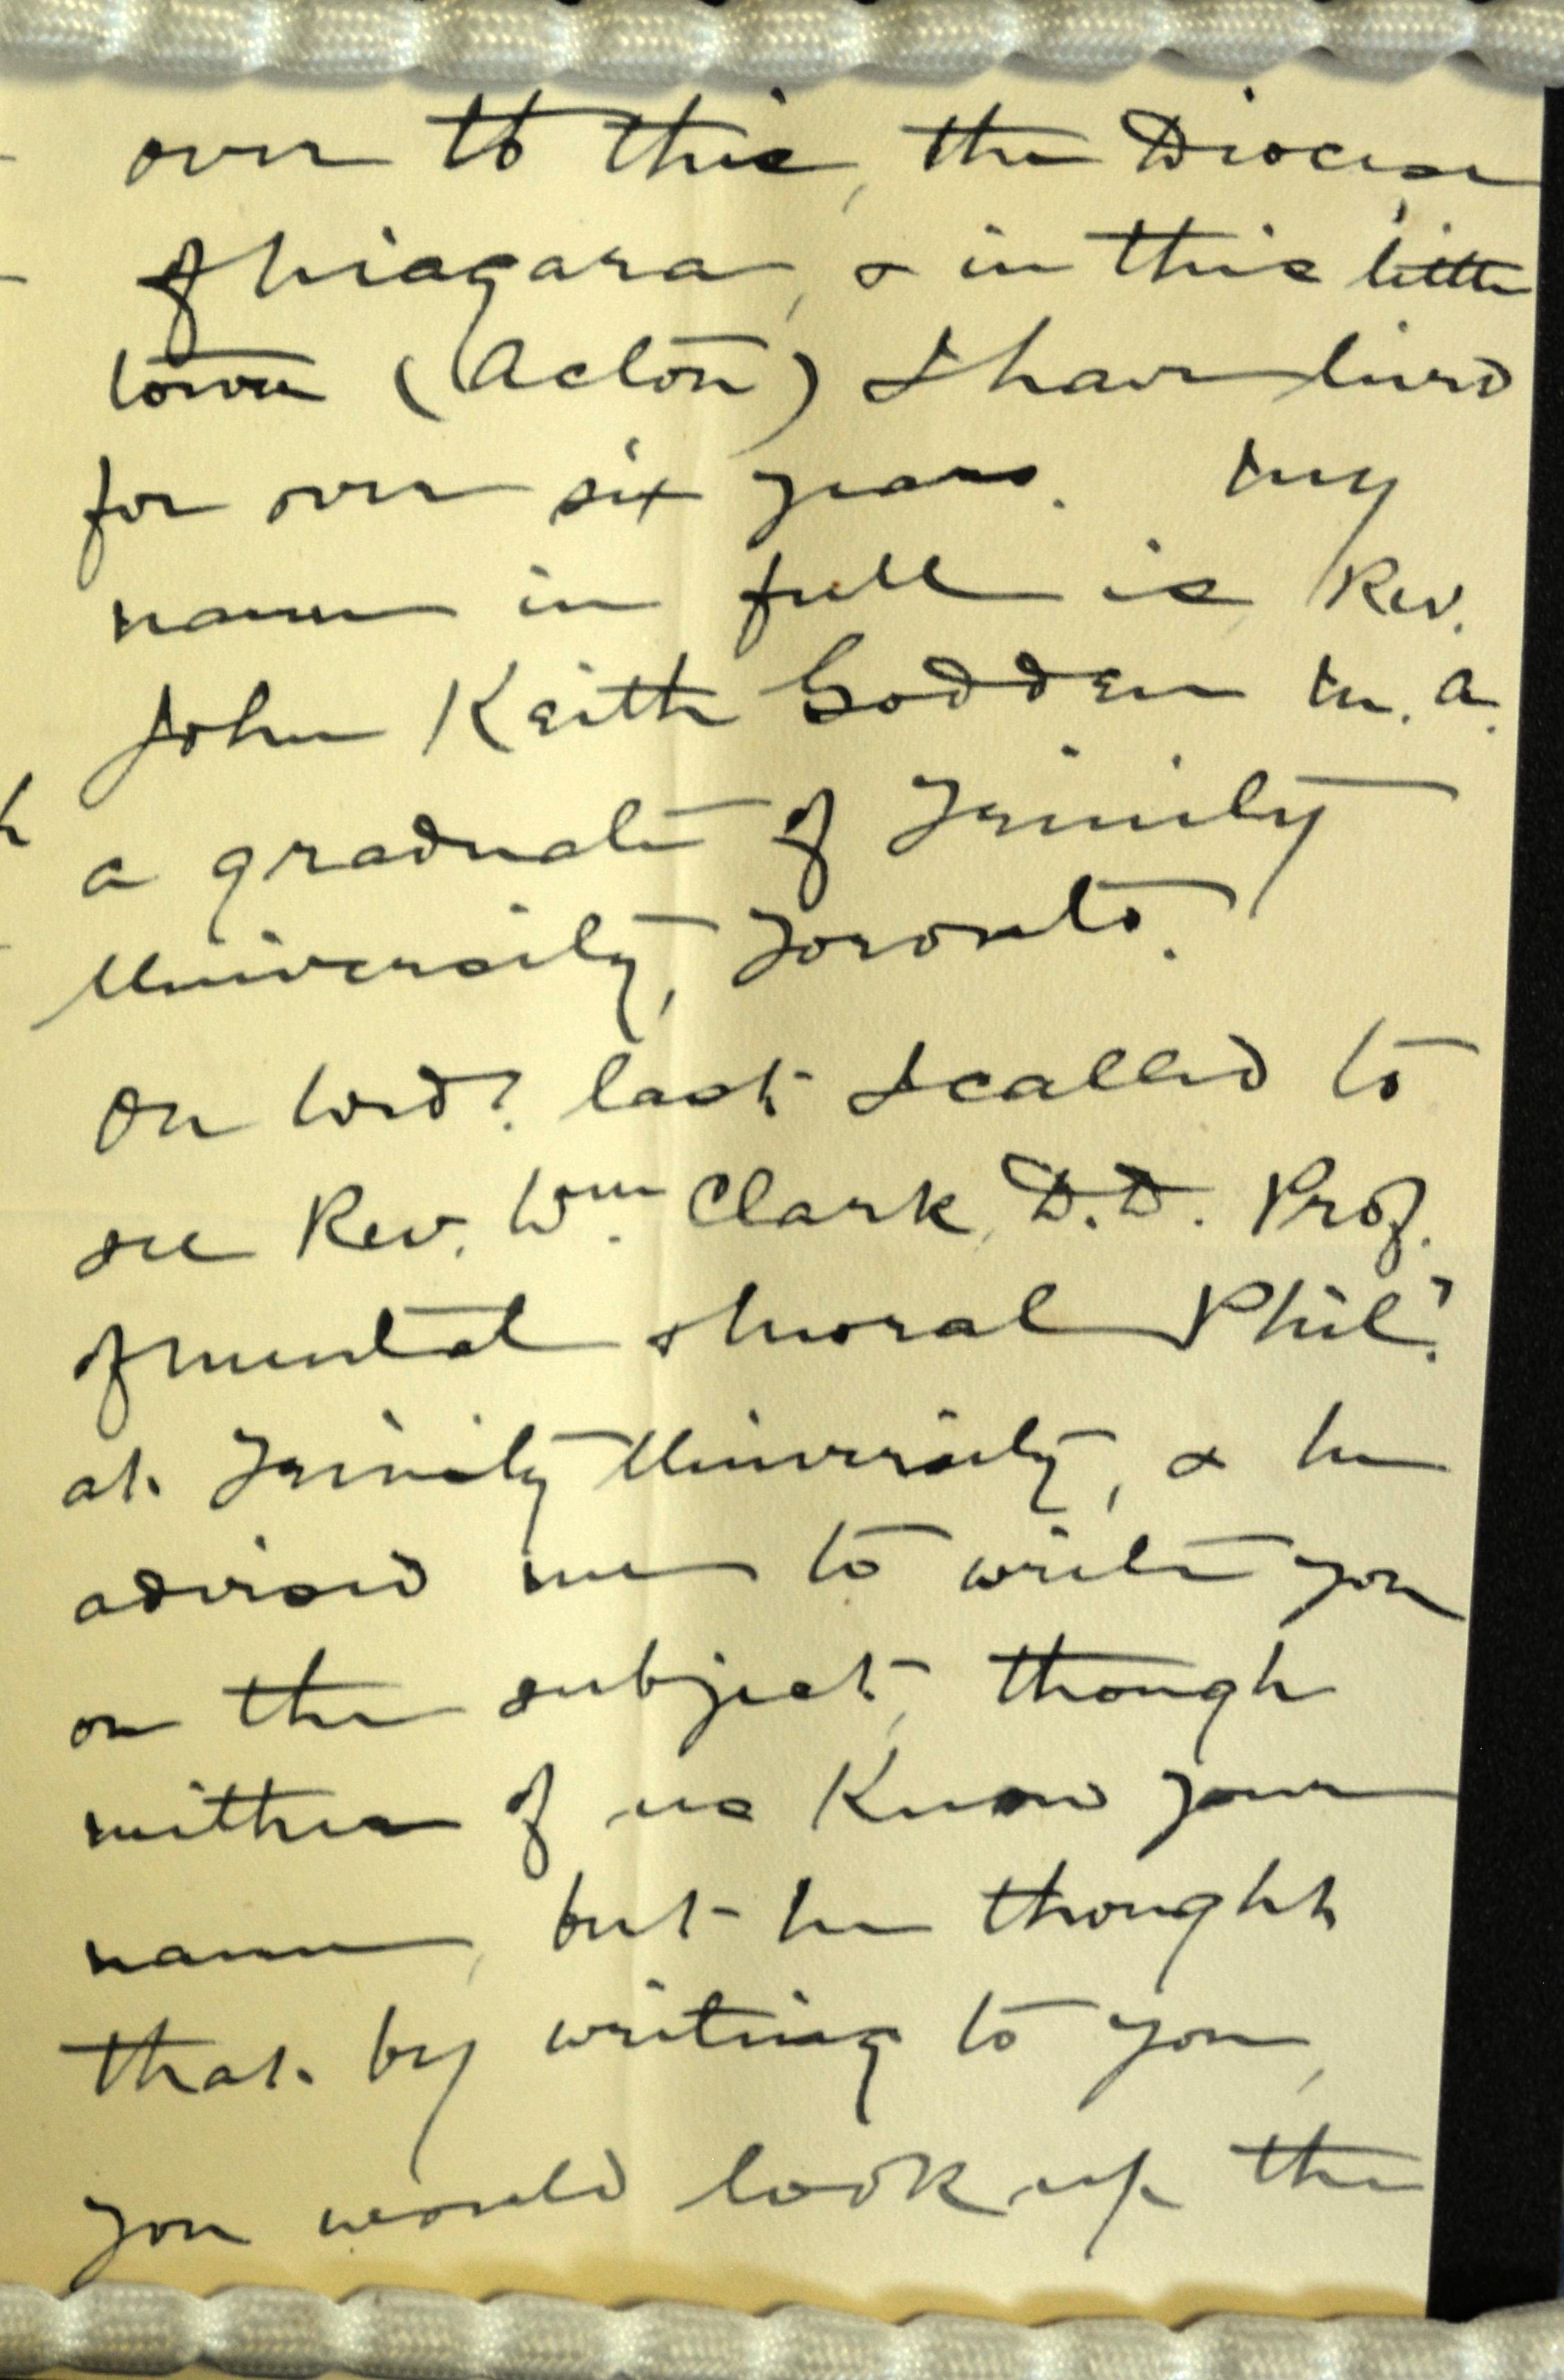 over to this, the Diocese
of Niagara, & in this little
town (Acton) I have lived
for over six years. My
name in full is, Rev.
John Keith Godden M.A.
a graduate of Trinity
University, Toronto.
On Wed? last I called to
see Rev. Wm. Clark, D.D. Prof.
of Mental & Moral Phil?
at Trinity University, & he
advised me to write you
on the subject, though
neither of us know your
name, but he thought
that by writing to you,
you would look up the